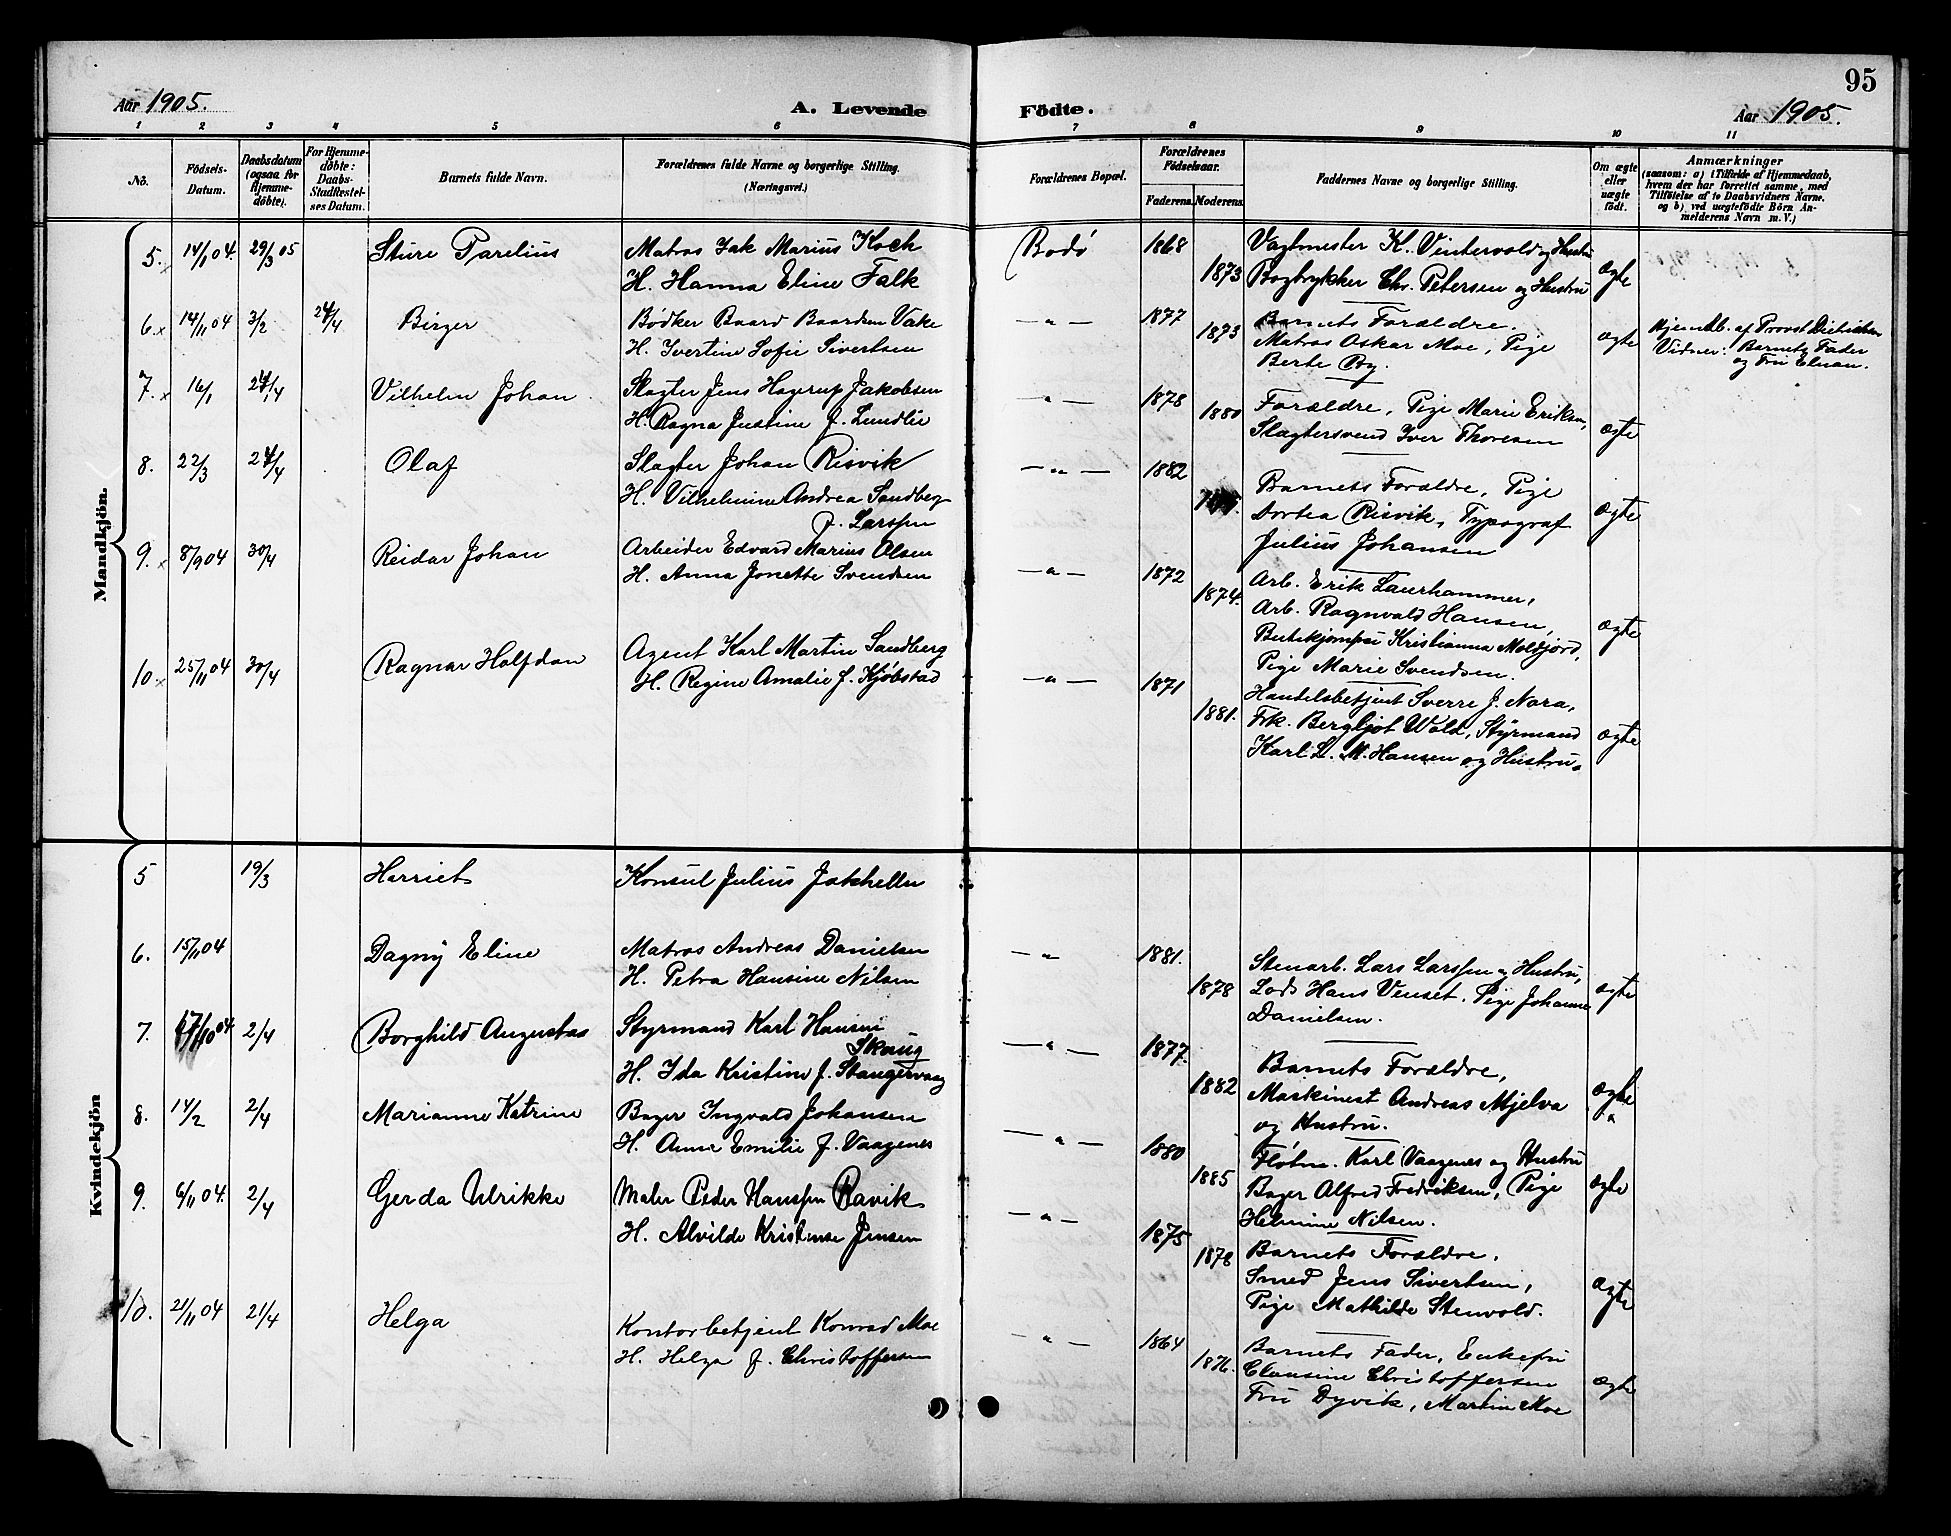 95
Aar 1905. A. Levende Födte. Aar 1905.
1 2 3 4 5 6 7 8 9 10 11
No.
Födsels-Datum.
Daabsdatum (ogsaa for Hjemme-döbte).
For Hjemme-döbte: Daabs-Stadfæstel-ses Datum.
Barnets fulde Navn.
Forældrenes fulde Navne og borgerlige Stilling. (Næringsvei.)
Forældrenes Bopæl.
Forældrenes Födselsaar.
Faderens. Moderens.
Faddernes Navne og borgerlige Stilling.
Om ægte eller uægte födt.
Anmærkninger
(saasom: a) i Tilfælde af Hjemmedaab,
hvem der har forrettet samme, med
Tilföielse af to Daabsvidners Navne,
og b) ved uægtefödte Börn An-
melderens Navn m. V.)
Mandkjön.
5. 14/1 04. 29/3 05 Sture Parelius Matros Jak Marius Koch Bodø 1868 Vagtmester K. Vintervold og Hustru
H. Hanna Eline Falk 1873 Bogtrykker Chr. Petersen og Hustru ægte
6. 14/11 04 3/2 24/4 Birger Bødker Baard Baardsen Vake — " — 1877 Barnets Forældre.
H. Ivertine Sofie Sivertsen 1873 Matros Oskar Moe, Pige ægte
Berte Bog.
Hjemdb. af Provst Dietrichson
Vidner: Barnets Fader
og Fru Elnan.
7. 16/1 24/4 Vilhelm Johan Slagter Jens Hagerup Jakobsen — " — 1878 Forældre, Pige Marie Eriksen,
H. Ragna Justine f. Lundlie 1880 Slagtersvend Iver Thoresen ægte
8. 22/3 24/4 Olaf Slagter Johan Risvik — " — 1882 Barnets Forældre, Pige
H. Vilhelmine Andrea Sandberg Dortea Risvik, Typograf ægte
f. Larssen Julius Johansen
9. 8/9 04 30/4 Reidar Johan Arbeider Edvard Marius Olsen — " — 1872 Arb. Erik Laurhammer,
H. Anna Jonette Svendsen 1874. Arb. Ragnvald Hansen,
Kristianna Moldjord, ægte
Pige Marie Svendsen.
10. 25/11 04 30/4 Ragnar Halfdan Agent Karl Martin Sandberg — " — 1871 Handelsbetjent Sverre J. Nora,
H. Regine Amalie f. Kjøbstad 1881. Frk. Bergljot Wold, Styrmand ægte
Karl L. M. Hansen og Hustru.
Kvindekjön
5 19/3 Harriet Konsul Julius Jakhelln
6. 15/11 04 Dagny Eline Matros Andreas Danielsen — " 1881. Stenarb. Lars Larssen og Hustru,
H. Petra Hansine Nilsen 1878 Lods Hans Venset. Pige Johanne ægte
Danielsen.
7. /10 04. 2/4 Borghild Augusta Styrmand Karl Hansen — " — 1877. Barnets Forældre,
Skaug
H. Ida Kristine f. Stangervaag 1882 Maskinest Andreas Mjelva ægte
og Hustru.
8. 14/2 2/4 Marianne Katrine Bager Ingvald Johansen — " — 1880 Fløtm. Karl Vaagenes og Hustru "
H. Anna Emilie f. Vaagenes 1885 Bager Alfred Fredriksen, Pige ægte
Helmine Nilsen.
9. 6/11 04. 2/4 Gerda Ulrikke Maler Peder Hanssen Ravik — " — 1875 Barnets Forældre,
H. Alvilde Kristense Jensen 1878 Smed Jens Sivertsen, ægte
Pige Mathilde Stenvold.
10. 21/11 04 21/4 Helga Kontorbetjent Konrad Moe — " — 1864 Barnets Fader, Enkefru
H. Helga f. Christoffersen 1876. Clausine Christoffersen ægte
Fru Dyvik, Martin Moe